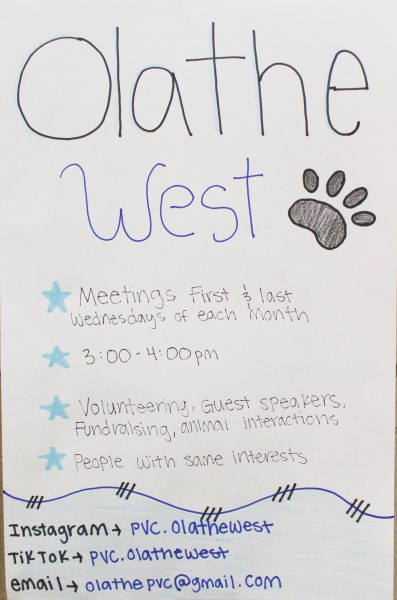 Olathe
West
Meetings First & last
Wednesdays of each month
3:00-4:00pm
Volunteering, Guest speakers,
Fundraising, animal interactions
People with same interests
Instagram → PVC.Olathewest
TikTok → PVC.Olathewest
email → olathepvc@gmail.com